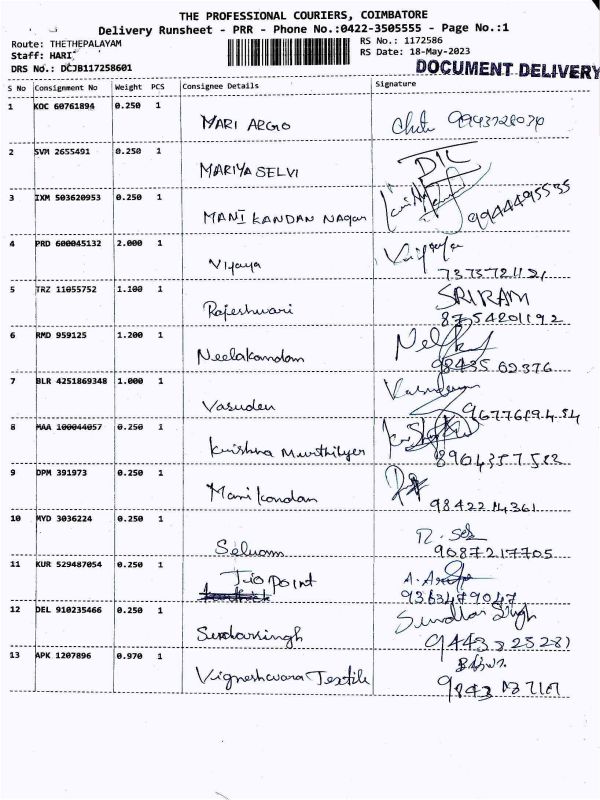 THE PROFESSIONAL COURIERS, COIMBATORE
Delivery Runsheet - PRR - Phone No.:0422-3505555 - Page No.:1
Route: THETHEPALAYAM RS No.: 1172586
Staff: HARI RS Date: 18-May-2023
DRS No.: DCJB117258601 DOCUMENT DELIVERY
S No Consignment No Weight PCS Consignee Details Signature
1 KOC 60761894 0.250 1
MARI ARGO
2 SVM 2655491 0.250 1
MARIYA SELVI DIL
3 IXM 503620953 0.250 1
MANIKANDAN Nagar 9944495535
4 PRD 600045132 2.000 1
Vijaya
5 TRZ 11055752 1.100 1 SRIRAM
Rajeshwari 8754201192
6 RMD 959125 1.200 1
Neelakandan 98435 69376
7 BLR 4251869348 1.000 1
Vasudev
8 MAA 100044057 0.250 1
9 DPM 391973 0.250 1
Manikandan 98422 14361
10 MYD 3036224 0.250 1
Selvam 9087217705
11 KUR 529487054 0.250 1
Jio Point 9363479047
12 DEL 910235466 0.250 1 Sundar Singh
Sundarsingh
13 APK 1207896 0.970 1
Vigneshwara Textile